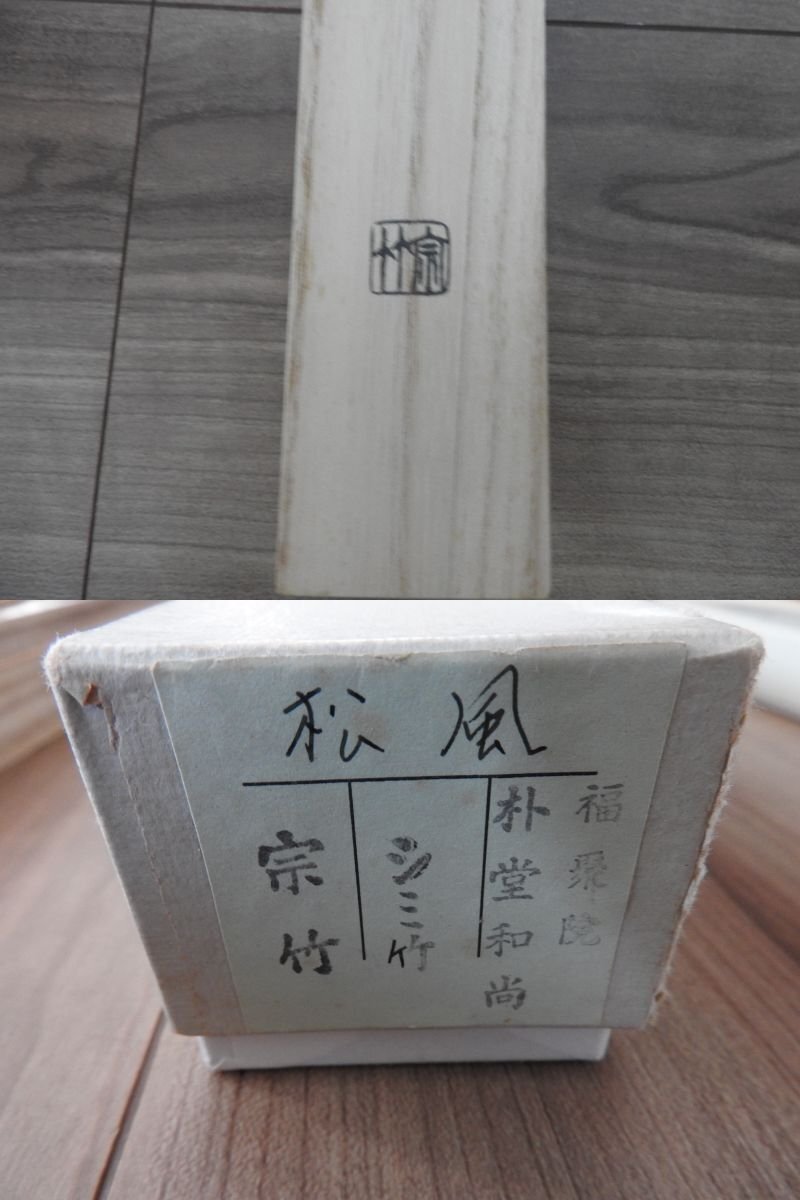 宗竹
松風
福聚院
朴堂和尚
シミ竹
宗竹